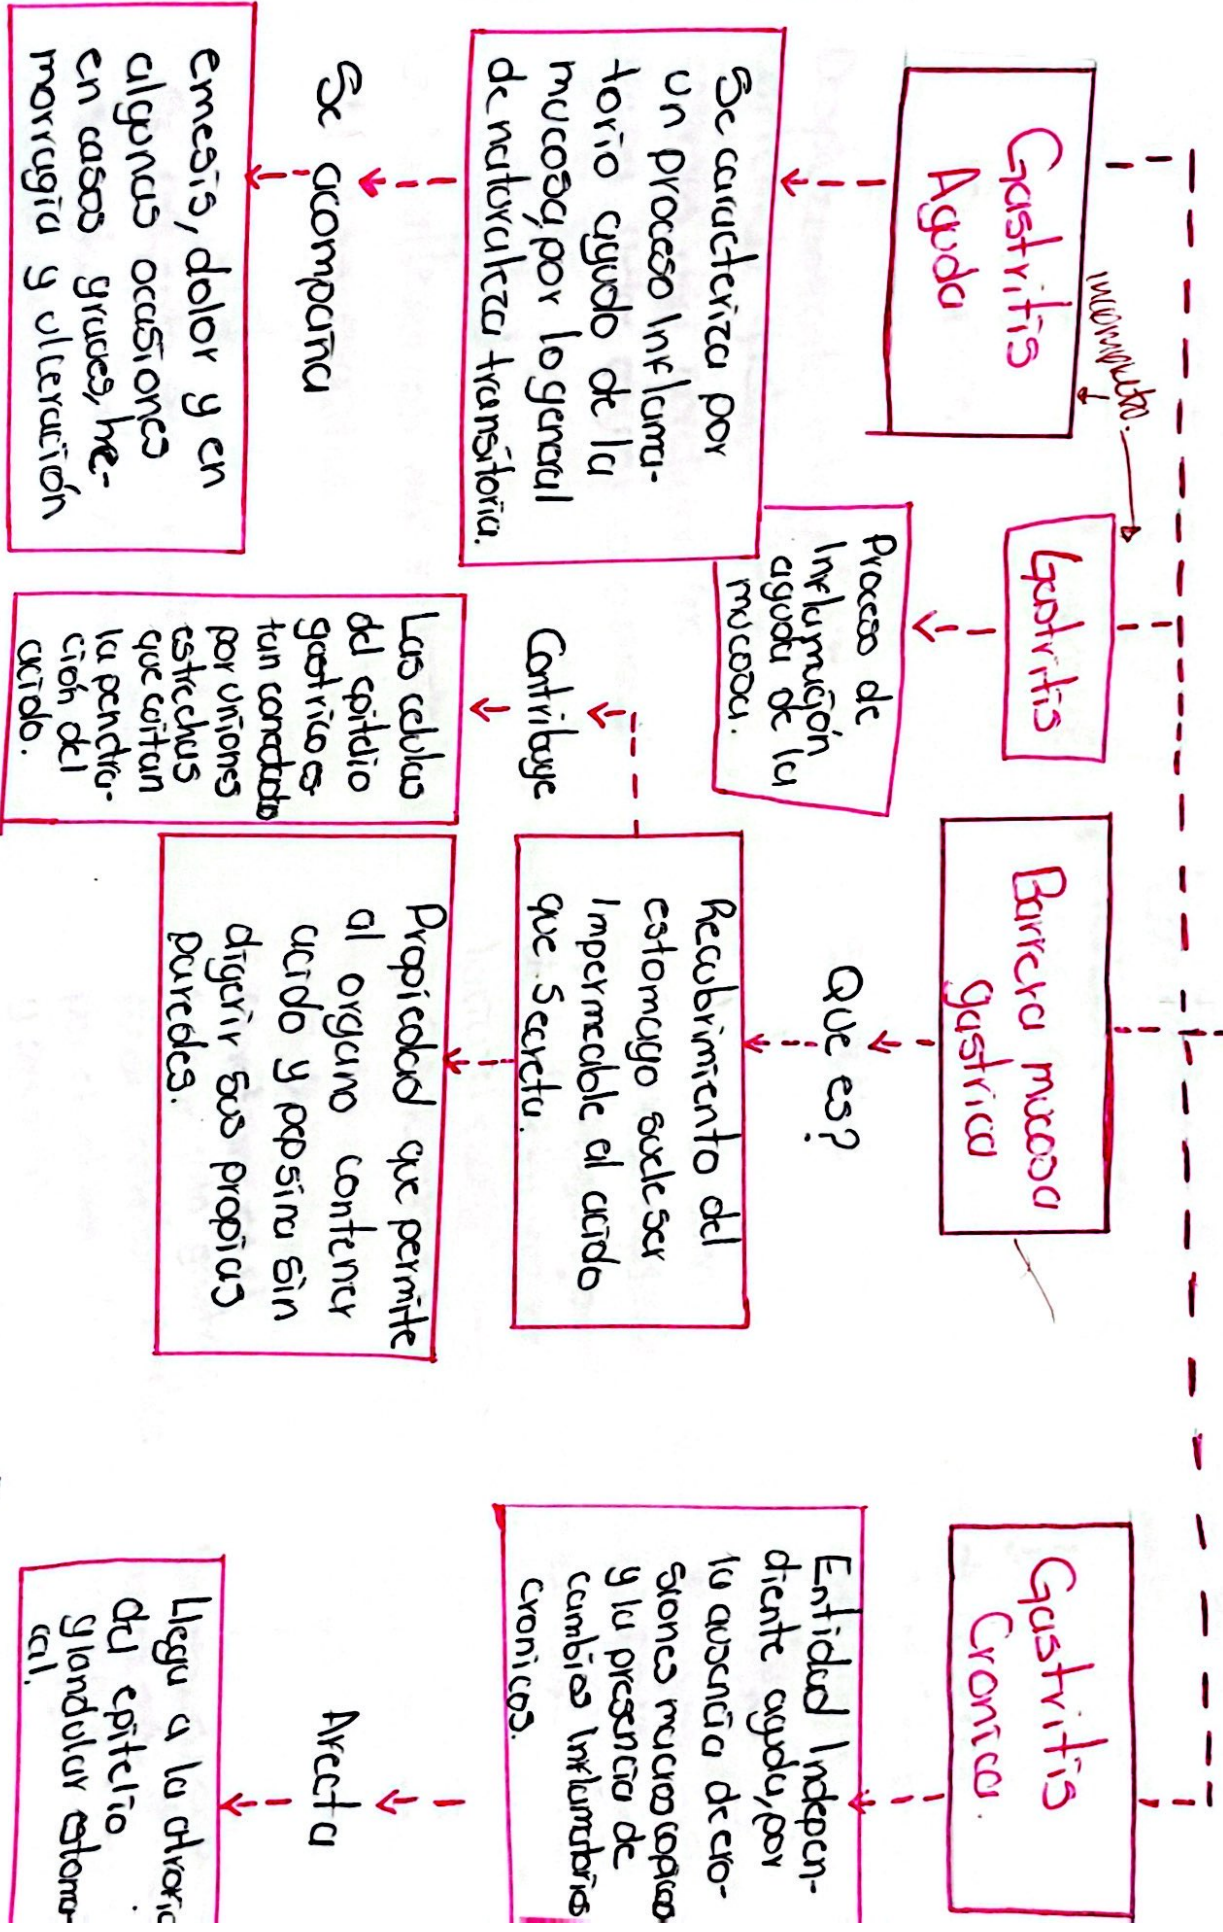 Gastritis
Aguda
Se caracteriza por
un proceso inflama-
torio agudo de la
mucosa, por lo general
de naturaleza transitoria.
Se acompaña
emesis, dolor y en
algunas ocasiones
en casos graves, he-
morragia y ulceración
incompleto.
Gastritis
Proceso de
Inflamación
aguda de la
mucosa.
Barrera mucosa
gastrica
Que es?
Recubrimiento del
estomago suele ser
Impermeable al acido
que secreta.
Contribuye
Las celulas
del epitelio
gastrico es
tan conectado
por uniones
estrechas
que evitan
la penetra-
ción del
acido.
Propiedad que permite
al organo contener
acido y pepsina sin
digerir sus propias
paredes.
Gastritis
Cronica.
Entidad Indepen-
diente aguda, por
la ausencia de ero-
siones macroscopicas
y la presencia de
cambios Inflamatorios
cronicos.
Afecta
Llega a la atrofia
del epitelio
glandular estoma-
cal.